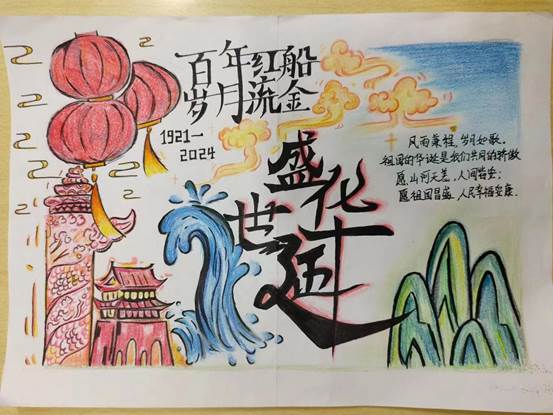 百年红船
岁月流金
1921—
2024
盛世华诞
风雨兼程,岁月如歌。
祖国的华诞是我们共同的骄傲
愿山河无恙,人间皆安;
愿祖国昌盛,人民幸福安康.